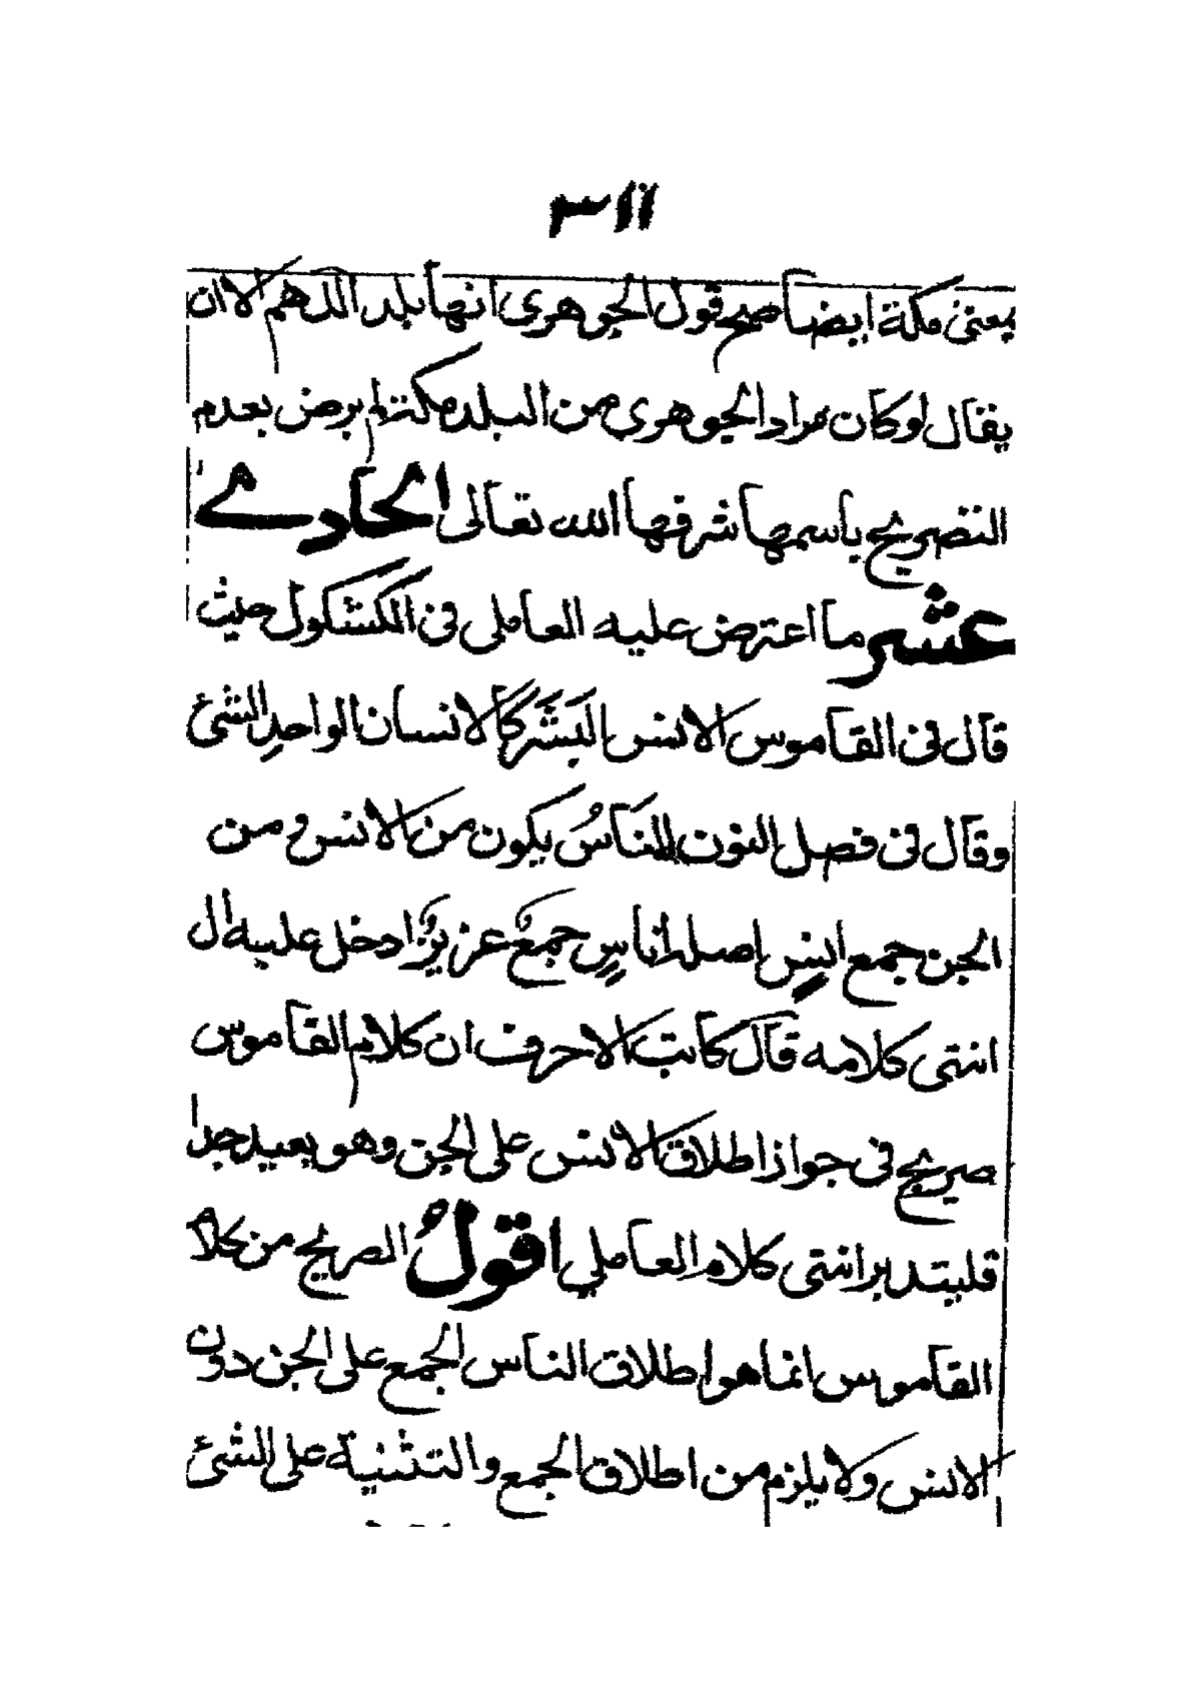 ٣١١
بمعنى مكة ايضا صح قول الجوهرى انها بلد اللهم الا ان
يقال لو كان مراد الجوهرى من البلد مكة لم يرض بعدم
التصريح باسمها شرفها الله تعالى الحادے
عشر ما اعترض عليه العاملى فى الكشكول حيث
قال فى القاموس الانس البَشَر كالانسان الواحدِ انسئ
وقال فى فصل النون الناسُ يكون من الانس ومن
الجن جمع اِنسٍ اصله اُناسٍ جمعٌ عزيزٌ ادخل عليه ال
انتى كلامه قال كاتب الاحرف ان كلام القاموس
صريح فى جواز اطلاق الانس على الجن وهو بعيد جدا
فليتدبر انتى كلام العاملي اقولُ الصريح من كلام
القاموس انما هو اطلاق الناس الجمع على الجن دون
الانس ولا يلزم من اطلاق الجمع والتثنية على الشئ